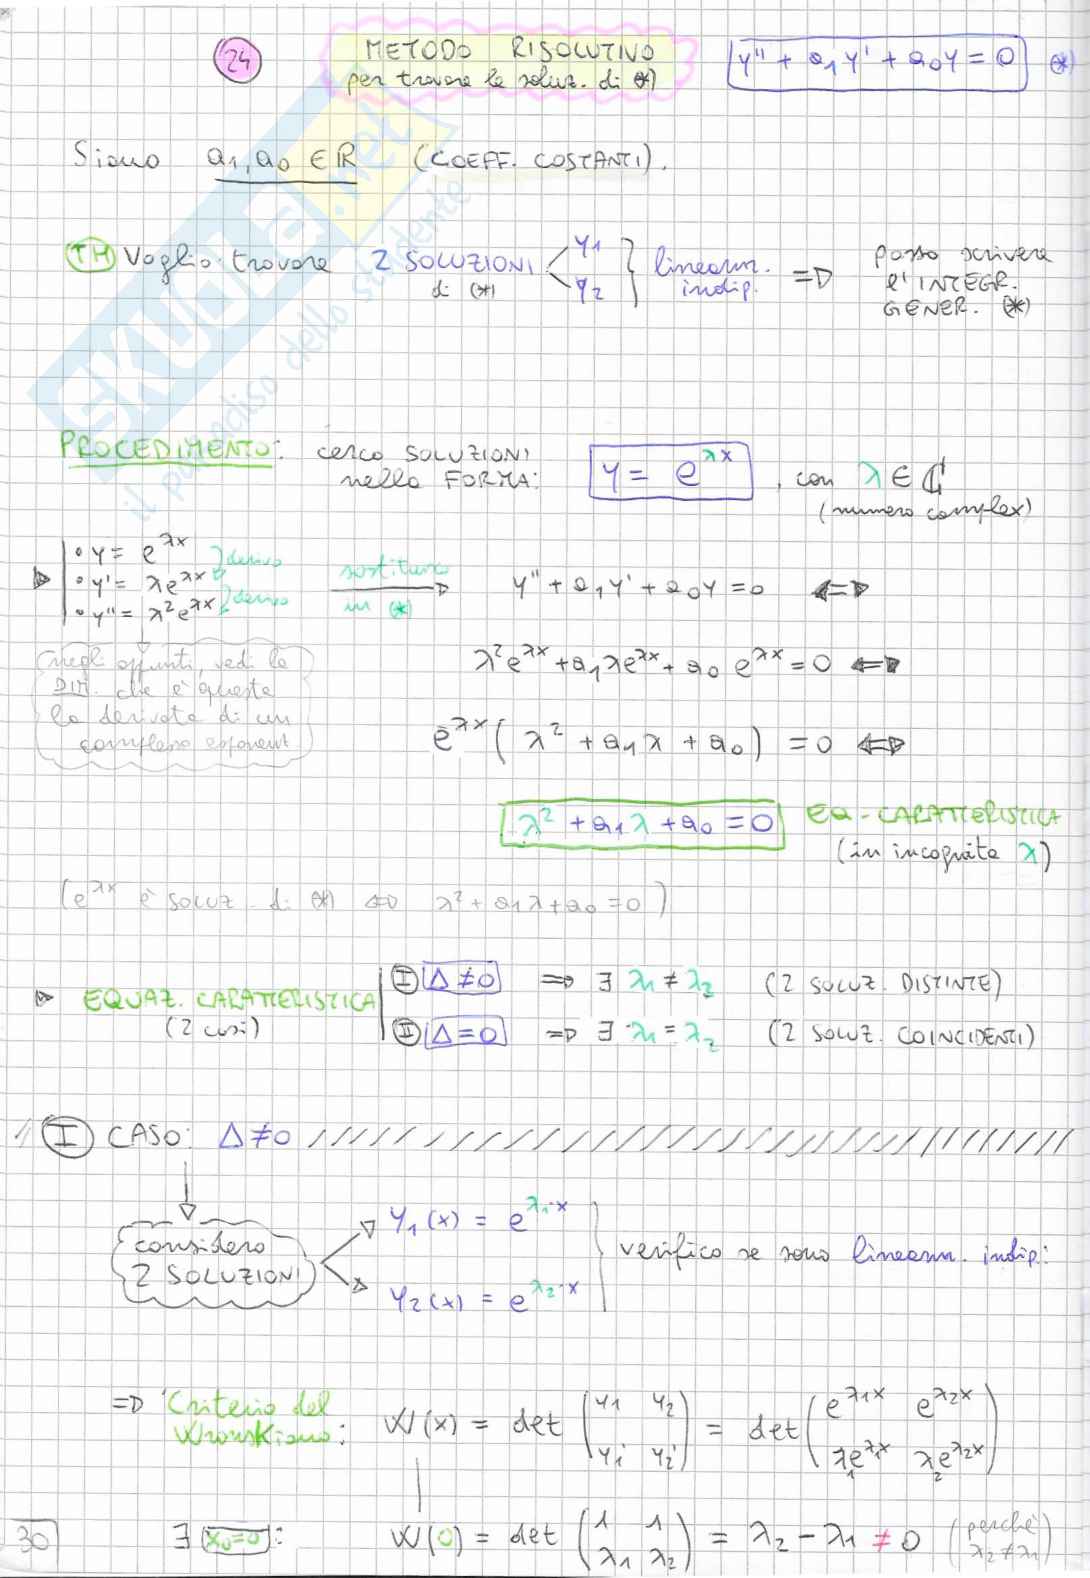 24 METODO RISOLUTIVO
per trovare le soluz. di (*)
y'' + a₁y' + a₀y = 0 (*)
Siano a₁, a₀ ∈ ℝ (COEFF. COSTANTI).
TH Voglio trovare 2 SOLUZIONI di (*) y₁ y₂ } linearm. indip. ⇒ posso scrivere l'INTEGR. GENER. (*)
PROCEDIMENTO: cerco SOLUZIONI
nella FORMA: y = e^{λx} , con λ ∈ ℂ
(numero compless)
• y = e^{λx} } derivo
• y' = λe^{λx} } derivo
• y'' = λ²e^{λx}
sostituisco in (*) → y'' + a₁y' + a₀y = 0 ⇔
λ²e^{λx} + a₁λe^{λx} + a₀ e^{λx} = 0 ⇔
(negli appunti, vedi la
DIM. che è questa
la derivata di un
complesso esponent.)
e^{λx} ( λ² + a₁λ + a₀ ) = 0 ⇔
λ² + a₁λ + a₀ = 0 EQ. CARATTERISTICA
(in incognita λ)
(e^{λx} è soluz. di (*) ⇔ λ² + a₁λ + a₀ = 0)
EQUAZ. CARATTERISTICA
(2 casi)
I Δ ≠ 0 ⇒ ∃ λ₁ ≠ λ₂ (2 SOLUZ. DISTINTE)
II Δ = 0 ⇒ ∃ λ₁ = λ₂ (2 SOLUZ. COINCIDENTI)
I CASO: Δ ≠ 0
considero
2 SOLUZIONI
y₁(x) = e^{λ₁·x}
y₂(x) = e^{λ₂·x}
verifico se sono linearm. indip.:
⇒ Criterio del
Wronskiano: W(x) = det ( y₁ y₂ ; y₁' y₂' ) = det ( e^{λ₁x} e^{λ₂x} ; λ₁e^{λ₁x} λ₂e^{λ₂x} )
∃ x₀=0 : W(0) = det ( 1 1 ; λ₁ λ₂ ) = λ₂ − λ₁ ≠ 0 (perché λ₂ ≠ λ₁)
30
SKUOLA.net
il paradiso dello studente